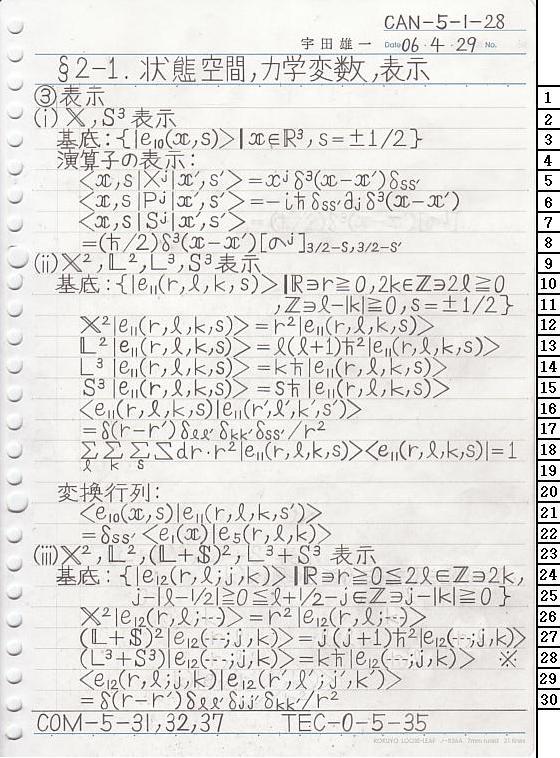 CAN-5-1-28
宇田雄一 Date 06・4・29 No.
§2-1. 状態空間,力学変数,表示
③表示
(i) 𝕏, S³ 表示
基底:{|e₁₀(x,s)>|x∈ℝ³, s=±1/2}
演算子の表示:
<x,s|Xʲ|x',s'>=xʲδ³(x-x')δss'
<x,s|Pʲ|x',s'>=-iħδss'∂jδ³(x-x')
<x,s|Sʲ|x',s'>
=(ħ/2)δ³(x-x')[σʲ]3/2-s,3/2-s'
(ii) 𝕏², 𝕃², L³, S³ 表示
基底:{|e₁₁(r,ℓ,k,s)>|ℝ∋r≧0, 2k∈ℤ∋2ℓ≧0
,ℤ∋ℓ-|k|≧0, s=±1/2}
𝕏²|e₁₁(r,ℓ,k,s)>=r²|e₁₁(r,ℓ,k,s)>
𝕃²|e₁₁(r,ℓ,k,s)>=ℓ(ℓ+1)ħ²|e₁₁(r,ℓ,k,s)>
L³|e₁₁(r,ℓ,k,s)>=kħ|e₁₁(r,ℓ,k,s)>
S³|e₁₁(r,ℓ,k,s)>=sħ|e₁₁(r,ℓ,k,s)>
<e₁₁(r,ℓ,k,s)|e₁₁(r',ℓ',k',s')>
=δ(r-r')δℓℓ'δkk'δss'/r²
Σℓ Σk Σs ∫dr・r²|e₁₁(r,ℓ,k,s)><e₁₁(r,ℓ,k,s)|=1
変換行列:
<e₁₀(x,s)|e₁₁(r,ℓ,k,s')>
=δss'<e₁(x)|e₅(r,ℓ,k)>
(iii) 𝕏², 𝕃², (𝕃+𝕊)², L³+S³ 表示
基底:{|e₁₂(r,ℓ;j,k)>|ℝ∋r≧0≦2ℓ∈ℤ∋2k,
j-|ℓ-1/2|≧0≦ℓ+1/2-j∈ℤ∋j-|k|≧0}
𝕏²|e₁₂(r,ℓ;…)>=r²|e₁₂(r,ℓ;…)>
(𝕃+𝕊)²|e₁₂(…;j,k)>=j(j+1)ħ²|e₁₂(…;j,k)>
(L³+S³)|e₁₂(…;j,k)>=kħ|e₁₂(…;j,k)> ※
<e₁₂(r,ℓ;j,k)|e₁₂(r',ℓ';j',k')>
=δ(r-r')δℓℓ'δjj'δkk'/r²
COM-5-31,32,37 TEC-0-5-35
KOKUYO LOOSE-LEAF ノ-836A 7mm ruled 31 lines
1
2
3
4
5
6
7
8
9
10
11
12
13
14
15
16
17
18
19
20
21
22
23
24
25
26
27
28
29
30